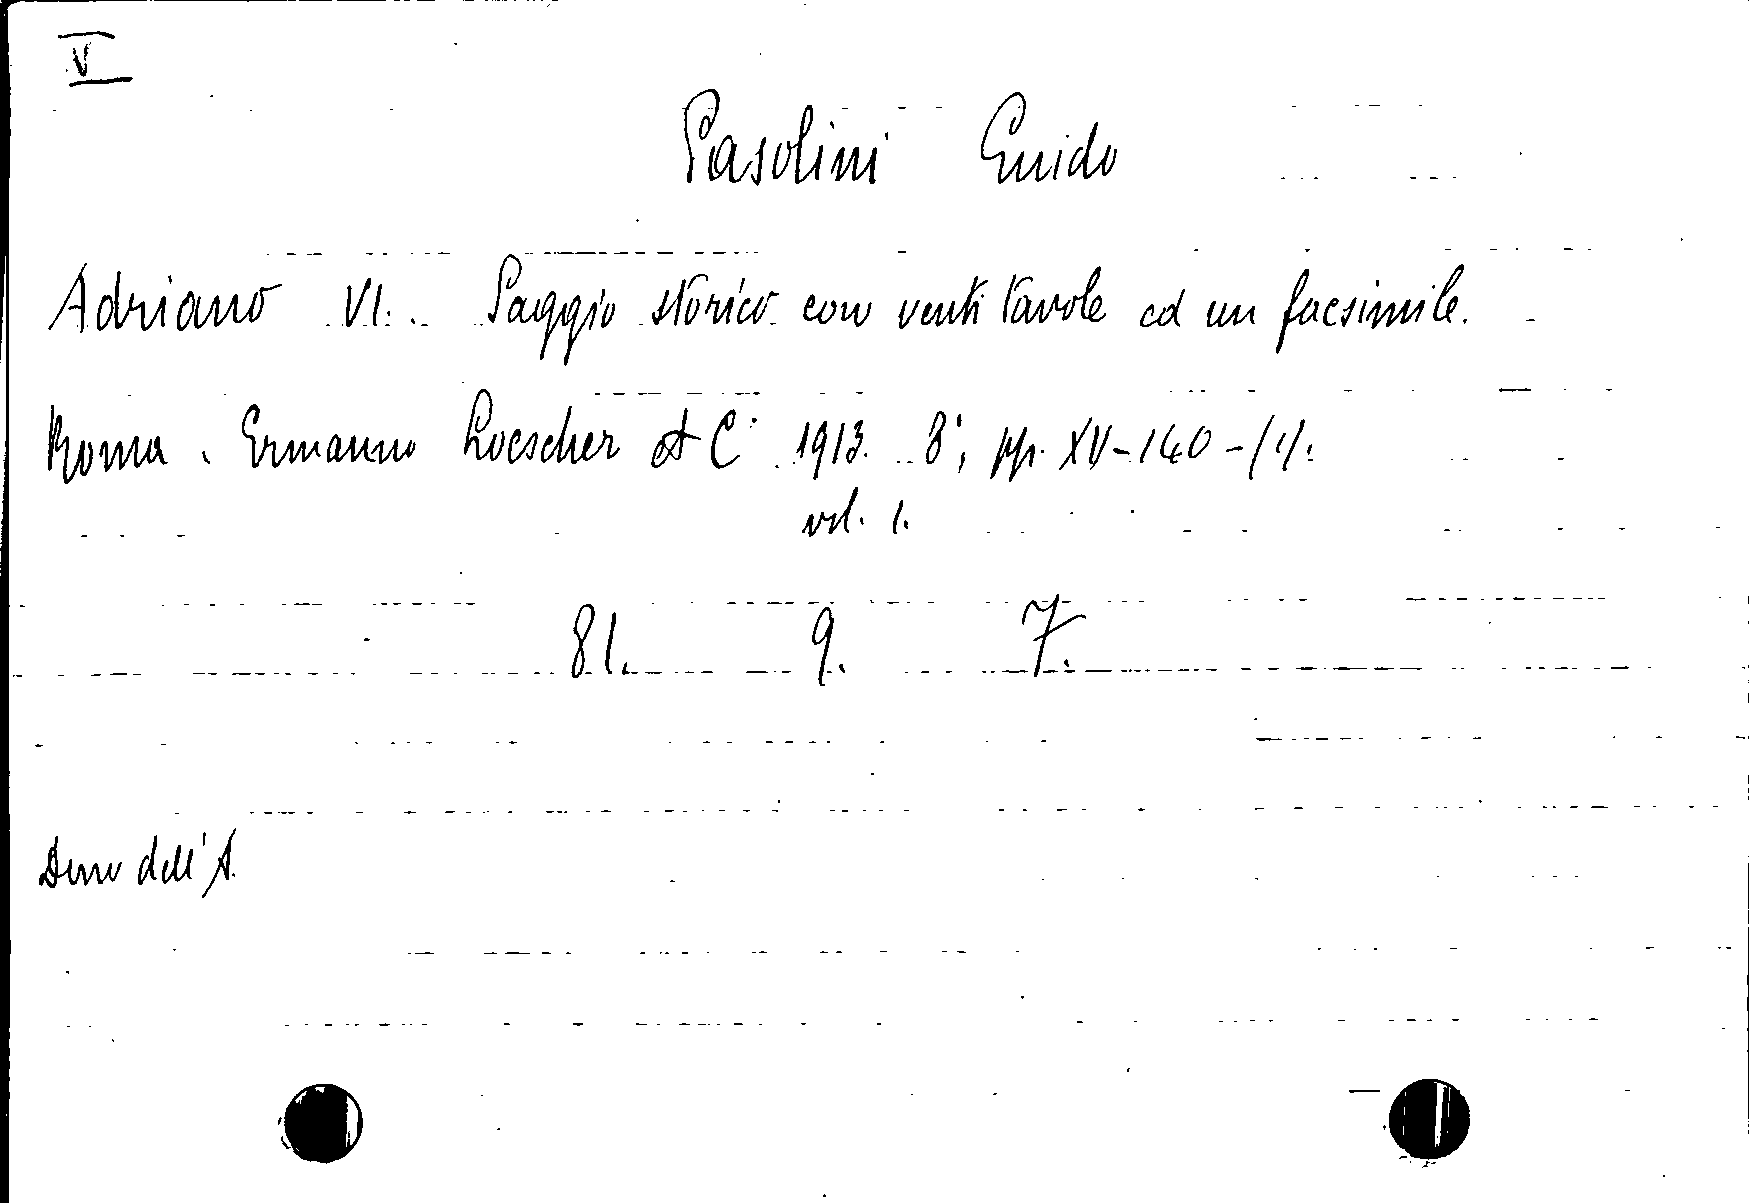 V
Pasolini Guido
Adriano VI. Saggio storico con venti tavole ed un facsimile.
Roma. Ermanno Loescher & C° 1913. 8°, pp. XV-140-(1).
vol. 1.
81. 9. 7.
Dono dell'A.